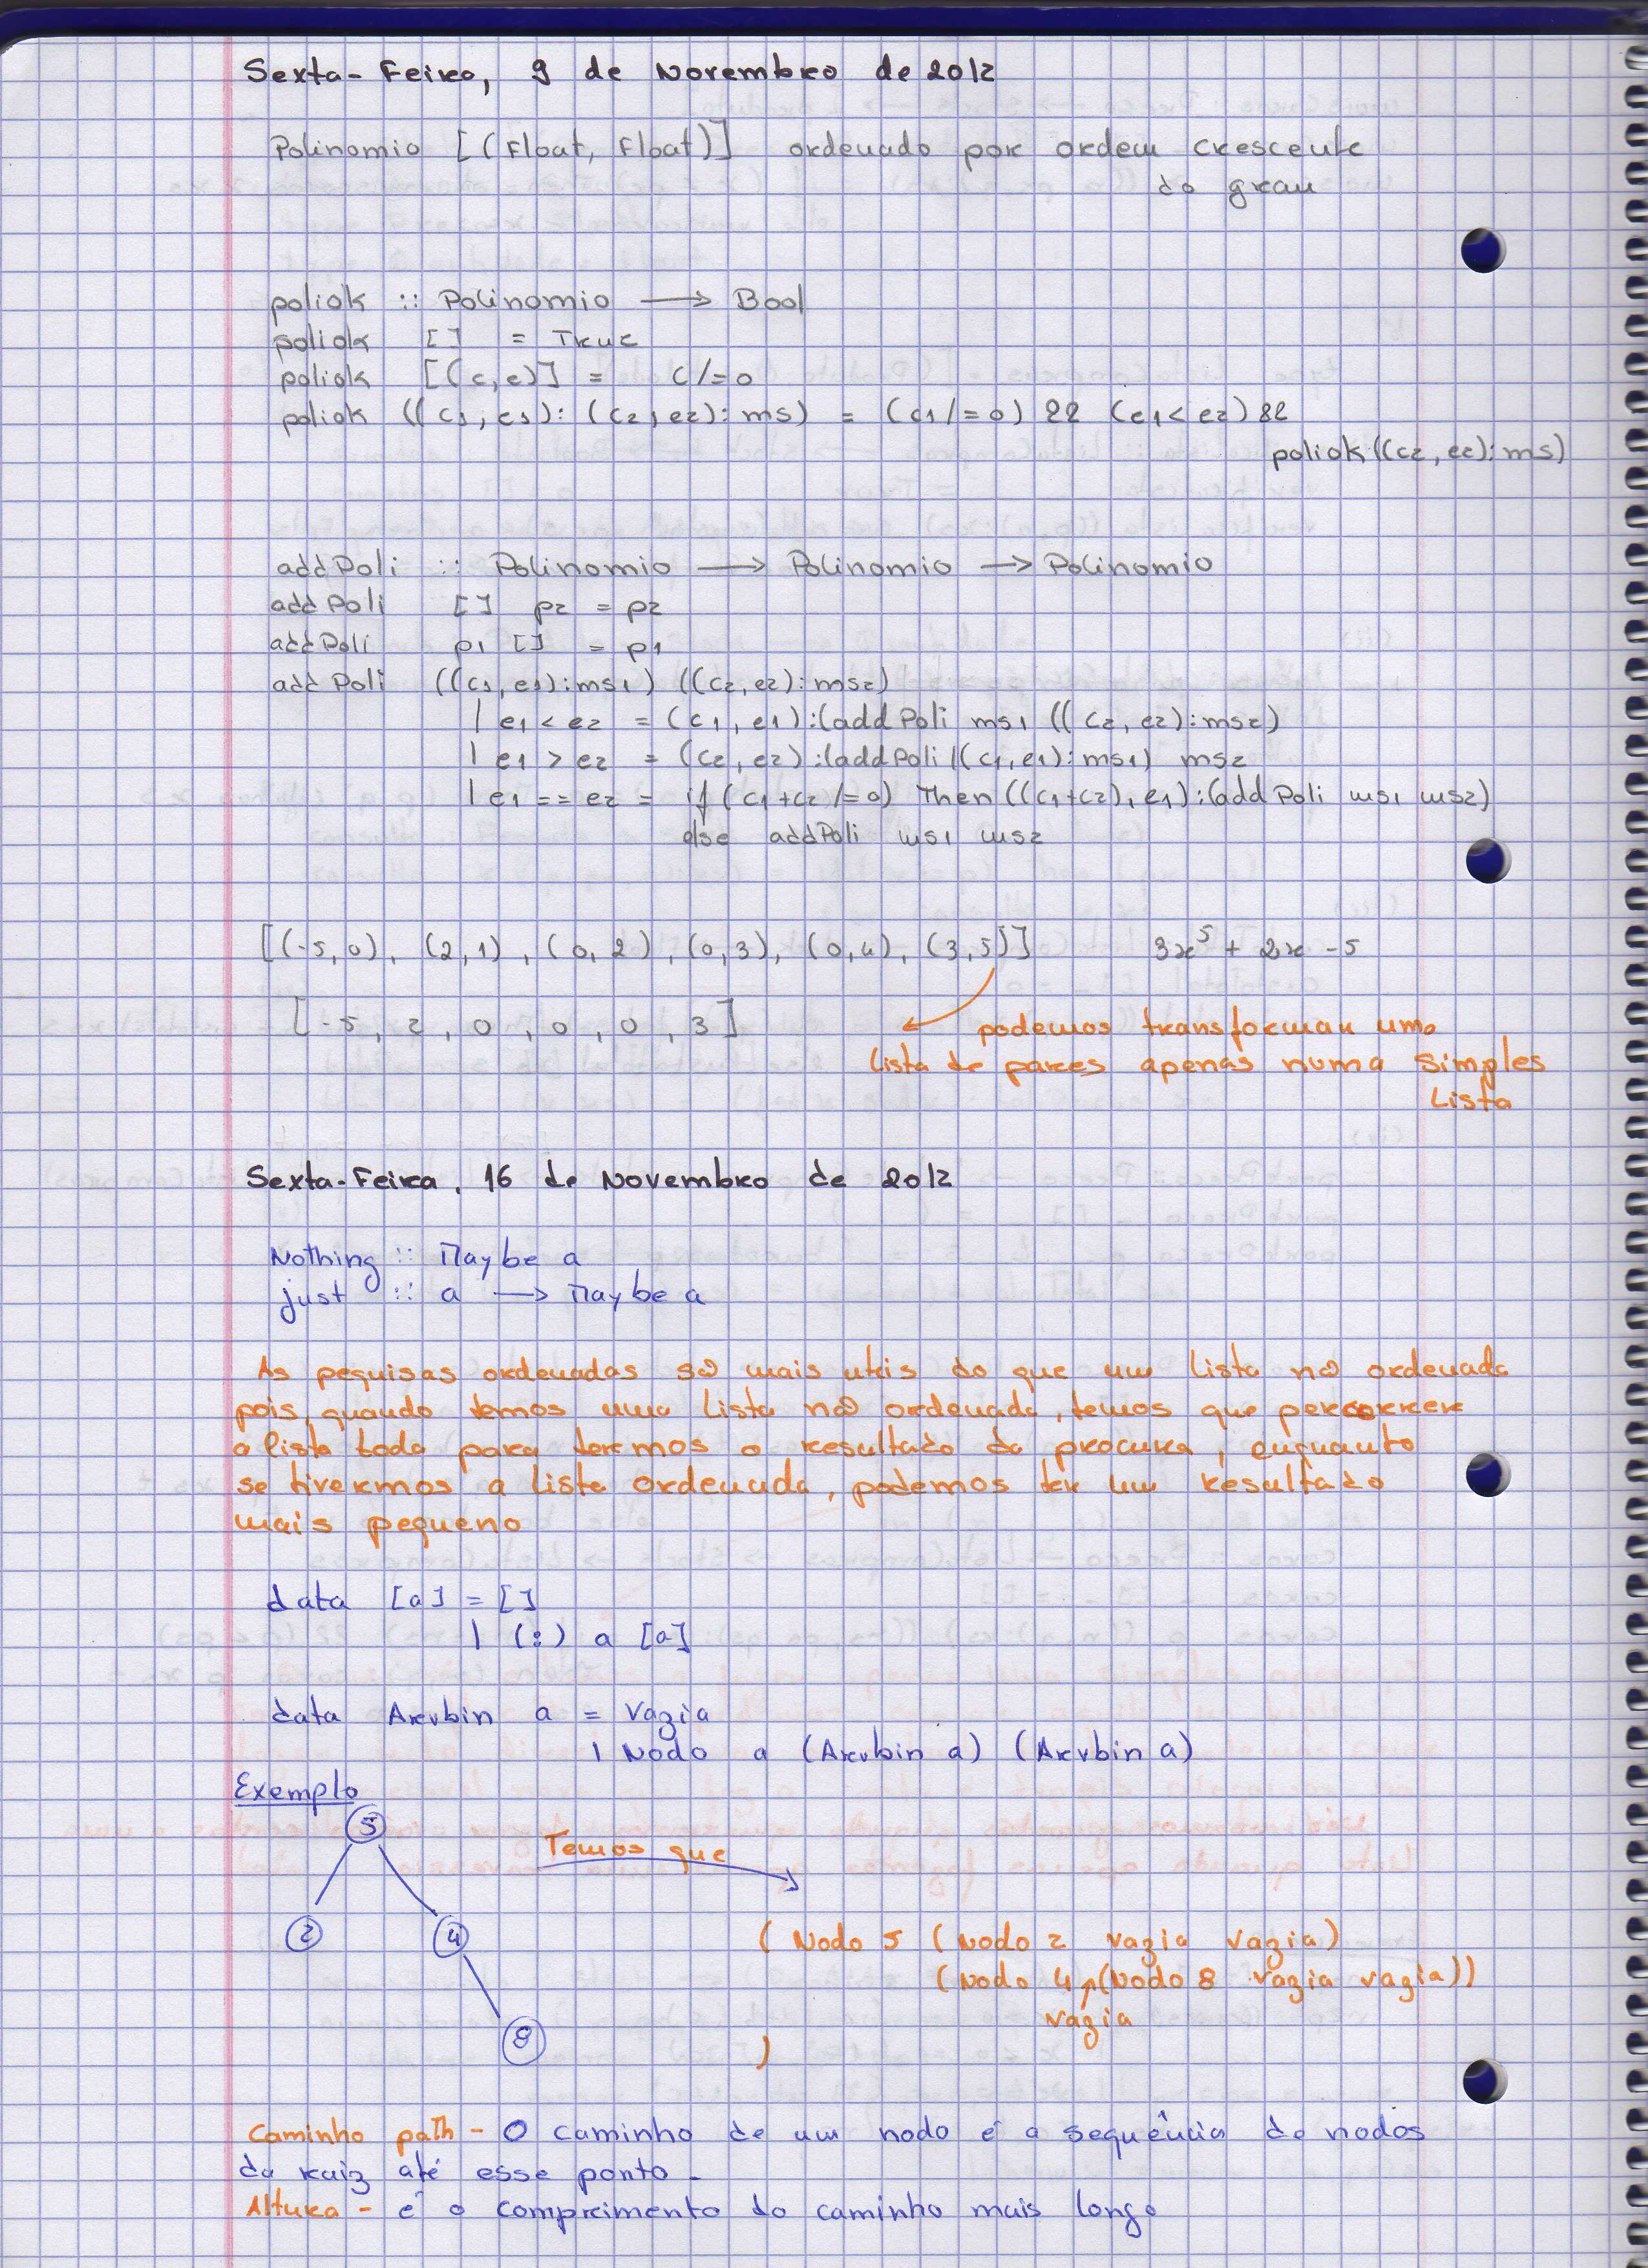 Sexta-Feira, 9 de Novembro de 2012
Polinomio [(Float, Float)] ordenado por ordem crescente
do grau
poliok :: Polinomio → Bool
poliok [] = True
poliok [(c,e)] = c/=0
poliok ((c1,e1):(c2,e2):ms) = (c1/=0) && (e1<e2) &&
poliok((c2,e2):ms)
addPoli :: Polinomio → Polinomio → Polinomio
addPoli [] p2 = p2
addPoli p1 [] = p1
addPoli ((c1,e1):ms1) ((c2,e2):ms2)
| e1 < e2 = (c1,e1):(addPoli ms1 ((c2,e2):ms2)
| e1 > e2 = (c2,e2):(addPoli((c1,e1):ms1) ms2
| e1 == e2 = if (c1+c2 /=0) Then ((c1+c2),e1):(addPoli ms1 ms2)
else addPoli ms1 ms2
[(-5,0), (2,1), (0,2), (0,3), (0,4), (3,5)] 3x⁵ + 2x - 5
[-5, 2, 0, 0, 0, 3] podemos transformar uma
lista de pares apenas numa simples
Lista
Sexta-Feira, 16 de Novembro de 2012
Nothing :: Maybe a
just :: a → Maybe a
As pequisas ordenadas sã mais uteis do que um lista nã ordenada
pois, quando temos uma Lista nã ordenada, temos que percorrer
a lista toda para termos o resultado da procura, enquanto
se tivermos a lista ordenada, podemos ter um resultado
mais pequeno
data [a] = []
| (:) a [a]
data Arvbin a = Vazia
| Nodo a (Arvbin a) (Arvbin a)
Exemplo
5
Temos que
2 4
( Nodo 5 (Nodo 2 vazia vazia)
(Nodo 4 (Nodo 8 vazia vazia))
vazia
8
)
Caminho path - O caminho de um nodo é a sequência de nodos
da raiz até esse ponto.
Altura - é o comprimento do caminho mais longo